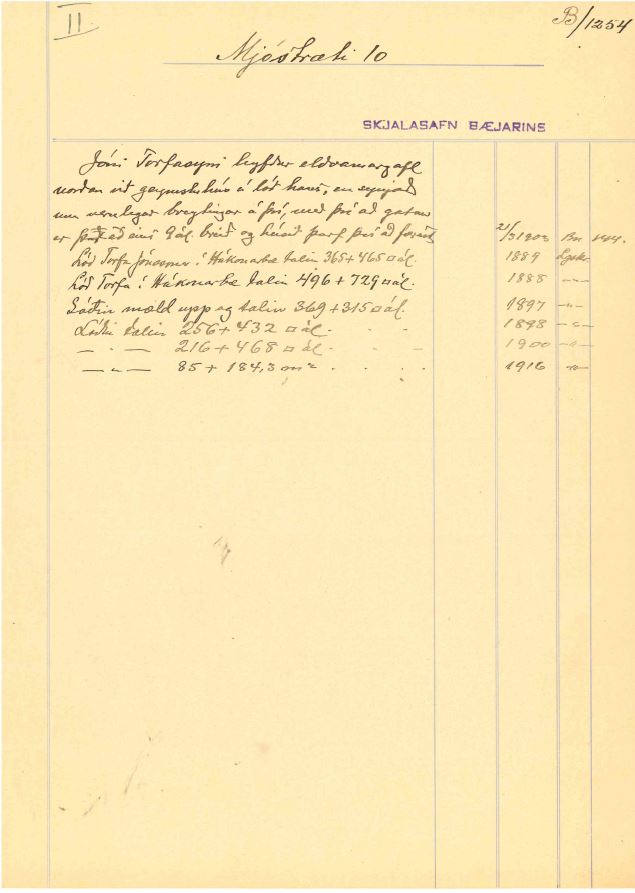 II
B/1254
Mjóstræti 10
SKJALASAFN BÆJARINS
Jóni Torfasyni leyfður eldvarnargafl
norðan við geymsluhús á lóð hans, en synjað
um verulegar breytingar á því, með því að gatan
er þar að eins 9 ál. breið og húsið þarf því að 21/3 1903 Bn
Lóð Torfa Jónssonar í Hákonarbæ talin 365+465 □ ál. 1889 Lgskr.
Lóð Torfa í Hákonarbæ talin 496+729 □ ál. 1888 —"—
Lóðin mæld upp og talin 369+315 □ ál. 1897 —"—
Lóðin talin 256+432 □ ál. 1898 —"—
— " — 216+468 □ ál. 1900 —"—
— " — 85+184,3 m² 1916 —"—